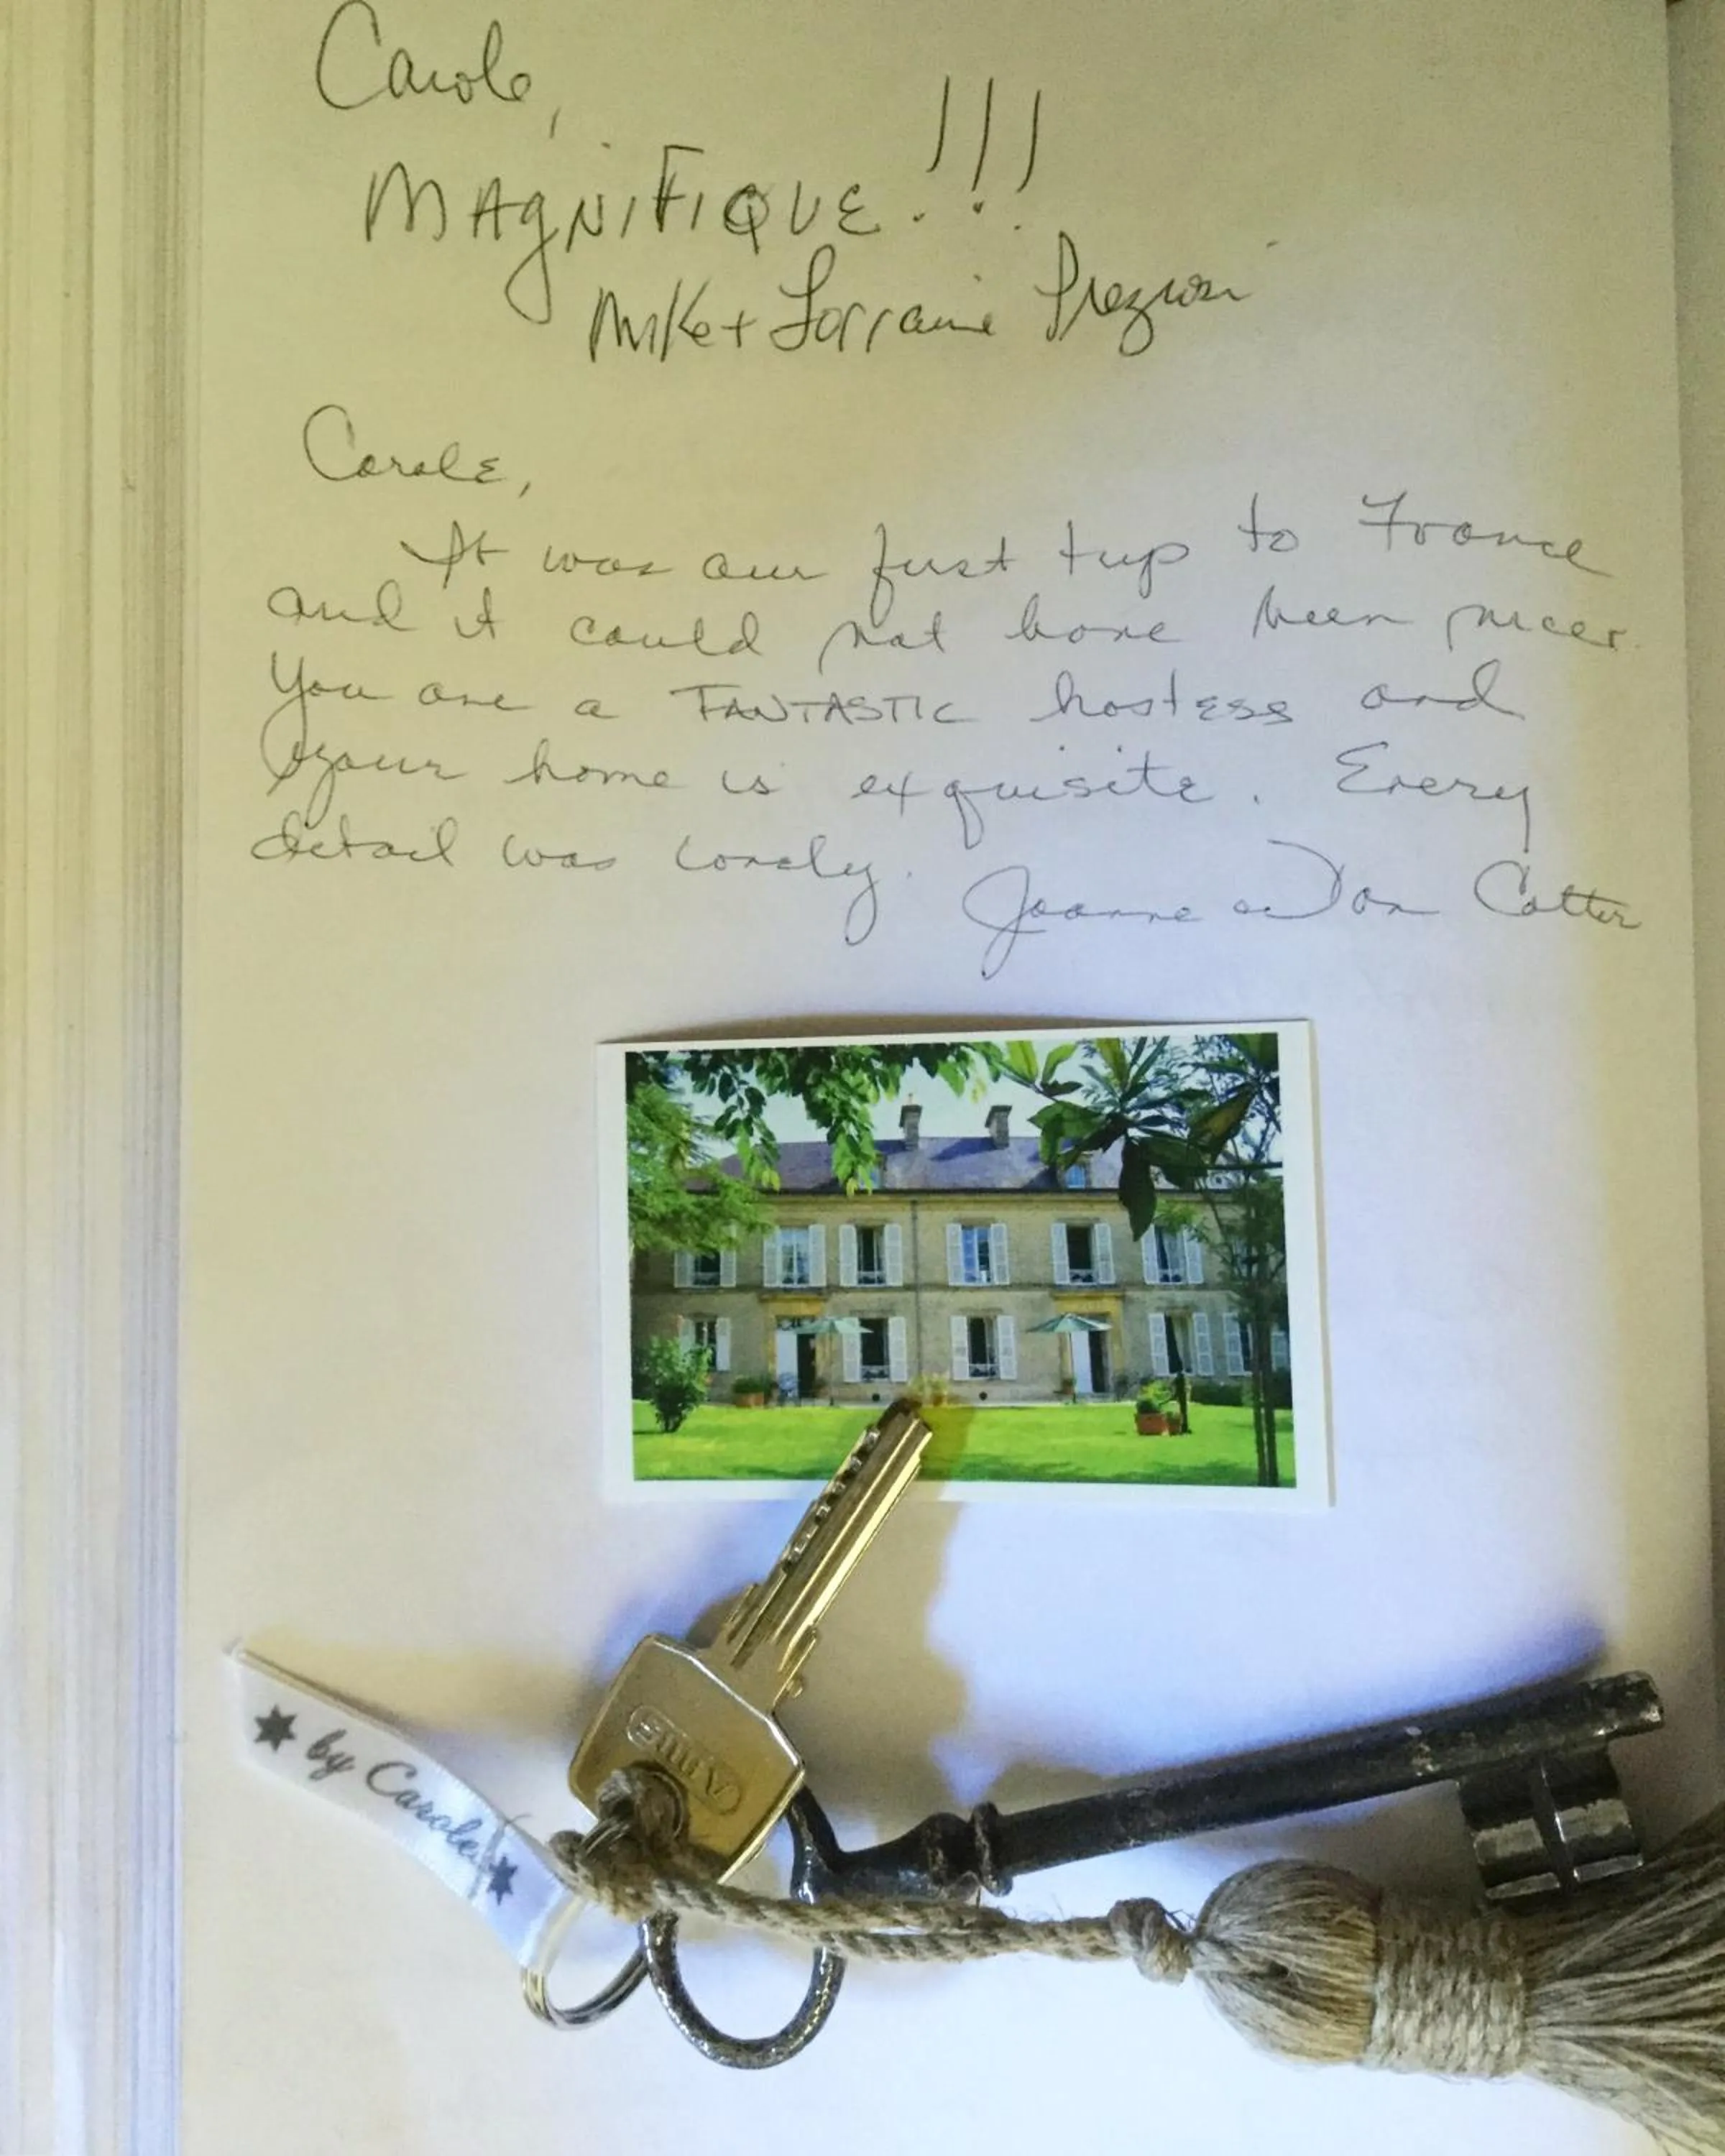 Carole,
MAgNiFiQUE!!!
Mike + Lorraine
Carole,
It was our first trip to France
and it could not have been nicer.
You are a FANTASTIC hostess and
your home is exquisite. Every
detail was lovely.
Joanne & Don Cotter
by Carole